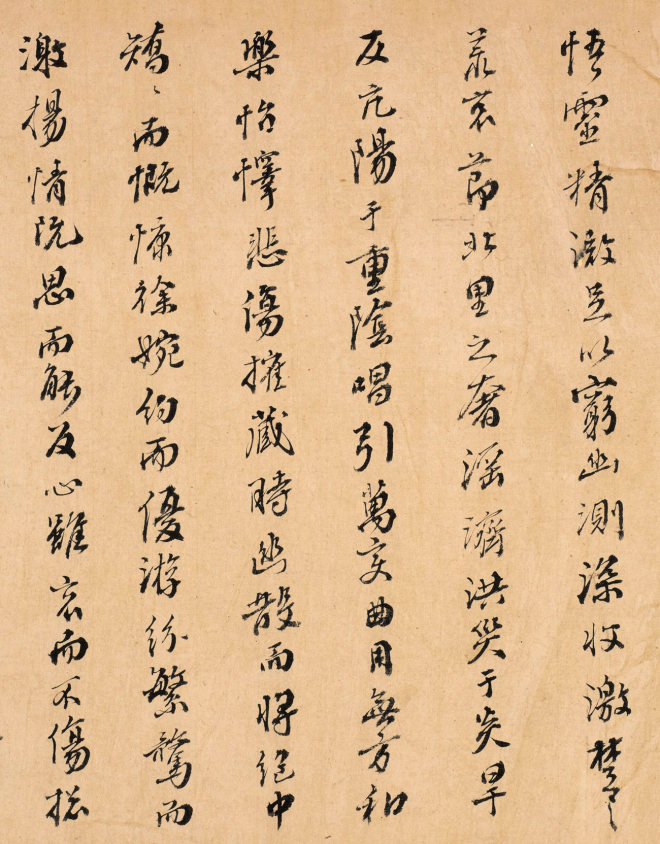 悟靈精微足以窮幽測深收激楚之
哀荒節北里之奢淫濟洪災于炎旱
反亢陽于重陰唱引萬變曲用無方和
樂怡懌悲傷摧藏時幽散而將絕中
矯〻而慨慷徐婉約而優游紛繁騖而
激揚情既思而能反心雖哀而不傷總